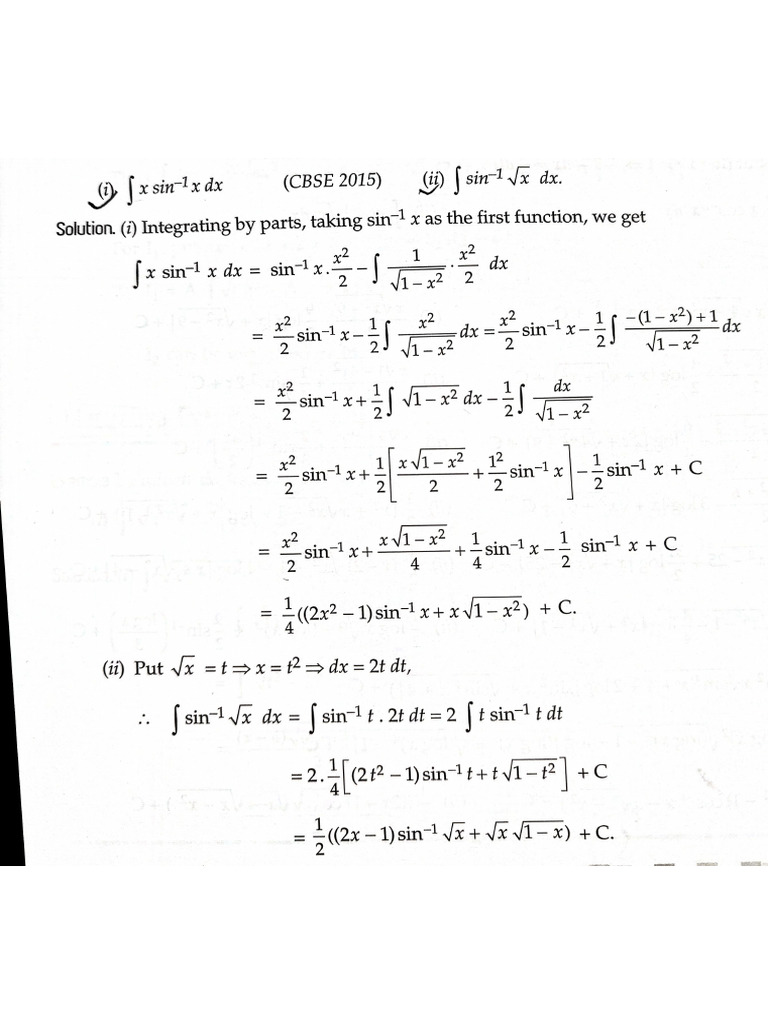 (i) ∫ x sin⁻¹ x dx (CBSE 2015) (ii) ∫ sin⁻¹ √x dx.
Solution. (i) Integrating by parts, taking sin⁻¹ x as the first function, we get
∫ x sin⁻¹ x dx = sin⁻¹ x . x²/2 − ∫ 1/√(1 − x²) · x²/2 dx
= x²/2 sin⁻¹ x − 1/2 ∫ x²/√(1 − x²) dx = x²/2 sin⁻¹ x − 1/2 ∫ (−(1 − x²) + 1)/√(1 − x²) dx
= x²/2 sin⁻¹ x + 1/2 ∫ √(1 − x²) dx − 1/2 ∫ dx/√(1 − x²)
= x²/2 sin⁻¹ x + 1/2 [x√(1 − x²)/2 + 1²/2 sin⁻¹ x] − 1/2 sin⁻¹ x + C
= x²/2 sin⁻¹ x + x√(1 − x²)/4 + 1/4 sin⁻¹ x − 1/2 sin⁻¹ x + C
= 1/4 ((2x² − 1) sin⁻¹ x + x√(1 − x²)) + C.
(ii) Put √x = t ⇒ x = t² ⇒ dx = 2t dt,
∴ ∫ sin⁻¹ √x dx = ∫ sin⁻¹ t . 2t dt = 2 ∫ t sin⁻¹ t dt
= 2 . 1/4 [(2t² − 1) sin⁻¹ t + t√(1 − t²)] + C
= 1/2 ((2x − 1) sin⁻¹ √x + √x √(1 − x)) + C.